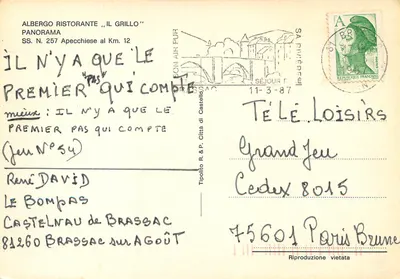 ALBERGO RISTORANTE „IL GRILLO"
PANORAMA
SS. N. 257 Apecchiese al Km. 12
IL N'Y A QUE LE
PREMIER "PAS" QUI COMPTE
mieux : IL N'Y A QUE LE
PREMIER PAS QUI COMPTE
(Jeu N° 54)
René DAVID
LE BOMPAS
CASTELNAU DE BRASSAC
81260 BRASSAC sur AGOÛT
Tipolito R. & P. Città di Castello
SON AIR PUR
SA RIVIÈRE
SÉJOUR
11-3-87
A
TÉLÉ LOISIRS
Grand Jeu
Cedex 8015
75601 Paris Brune
Riproduzione vietata